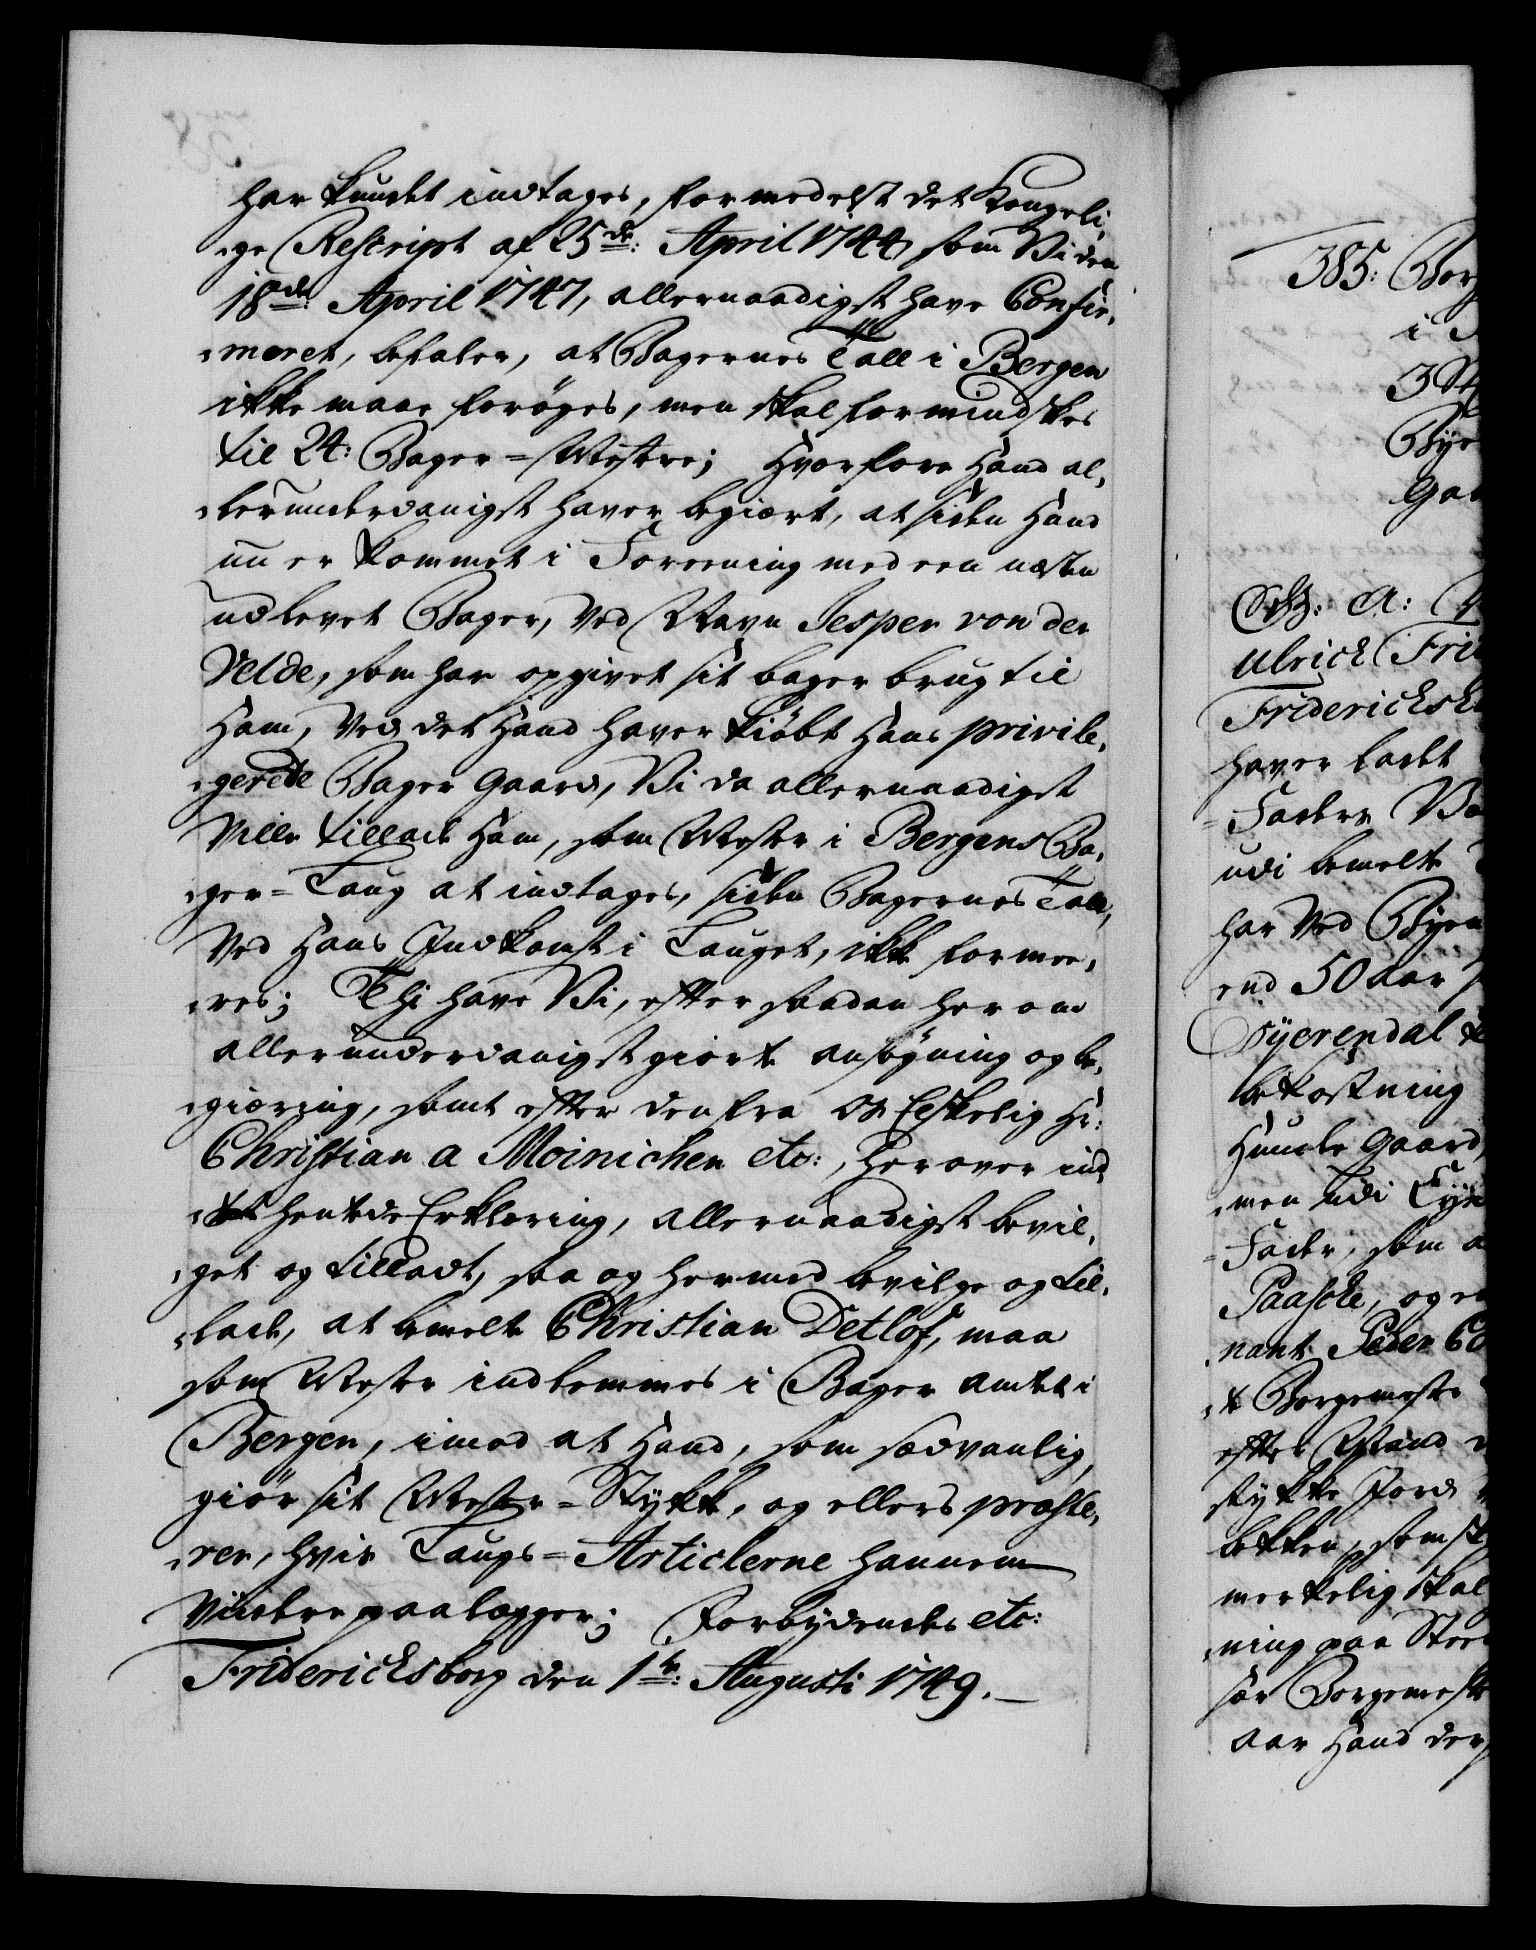 har kundet indtages, formedelst det Kongeli,
,ge Rescript af 25de: April 1744, som Vi den
18de: April 1747, allernaadigst have Confir,
,meret, befaler, at Bagernes Tall i Bergen
ikke maae forøges, men skal formindskes
til 24: Bager=Mestre; Hvorfore Hand al,
,lerunderdanigst haver begiært, at siden Hand
nu er kommet i Foreening med een næsten
udlevet Bager, Ved Navn Jesper von der
Velde, som har opgivet sit bager brug til
Ham, Ved det Hand haver kiøbt Hans privile,
,gerede Bager Gaard, Vi da allernaadigst
Ville tillade Ham, som Mester i Bergens Ba,
,ger=Laug at indtages, siden Bagernes Tall,
Ved Hans Indkomst i Lauget, ikke formee,
,res; Thi have Vi, efter saadan her om
allerunderdanigst giorte ansøgning og be,
,giæring, samt efter den fra Os Elskelig Hr:
Christian a Moinichen etc:, herover ind
hentede Erklæring, allernaadigst bevil,
,get og tilladt, saa og hermed bevilge og til,
,lade, at bemelte Christian Detlof, maa
som Mester indlemmes i Bager amtet i
Bergen, imod at Hand, som sædvanlig,
giør sit Mester=Stykke, og ellers præste,
,rer, hvis Laugs=Articlerne hannem
Videre paalægger; Forbydendes etc:
Fridericksborg den 1te: Augusti 1749.
385: Bor
i
3 St
Bye
Gaa
S: A:
Ulrick Fri
Fridericksh
haver ladet
Fader
udi bemelte
har Ved Byen
end 50 aar
Byerendal
bekostning
Hunde Gaard,
,men udi
Fader, som a
Paaske, og
,nant Peder C
Borgemester
efter
stykke Jord
bekken, som
merkelig skal
,ning paa Stor
sær Borgemeste
aar Hand der